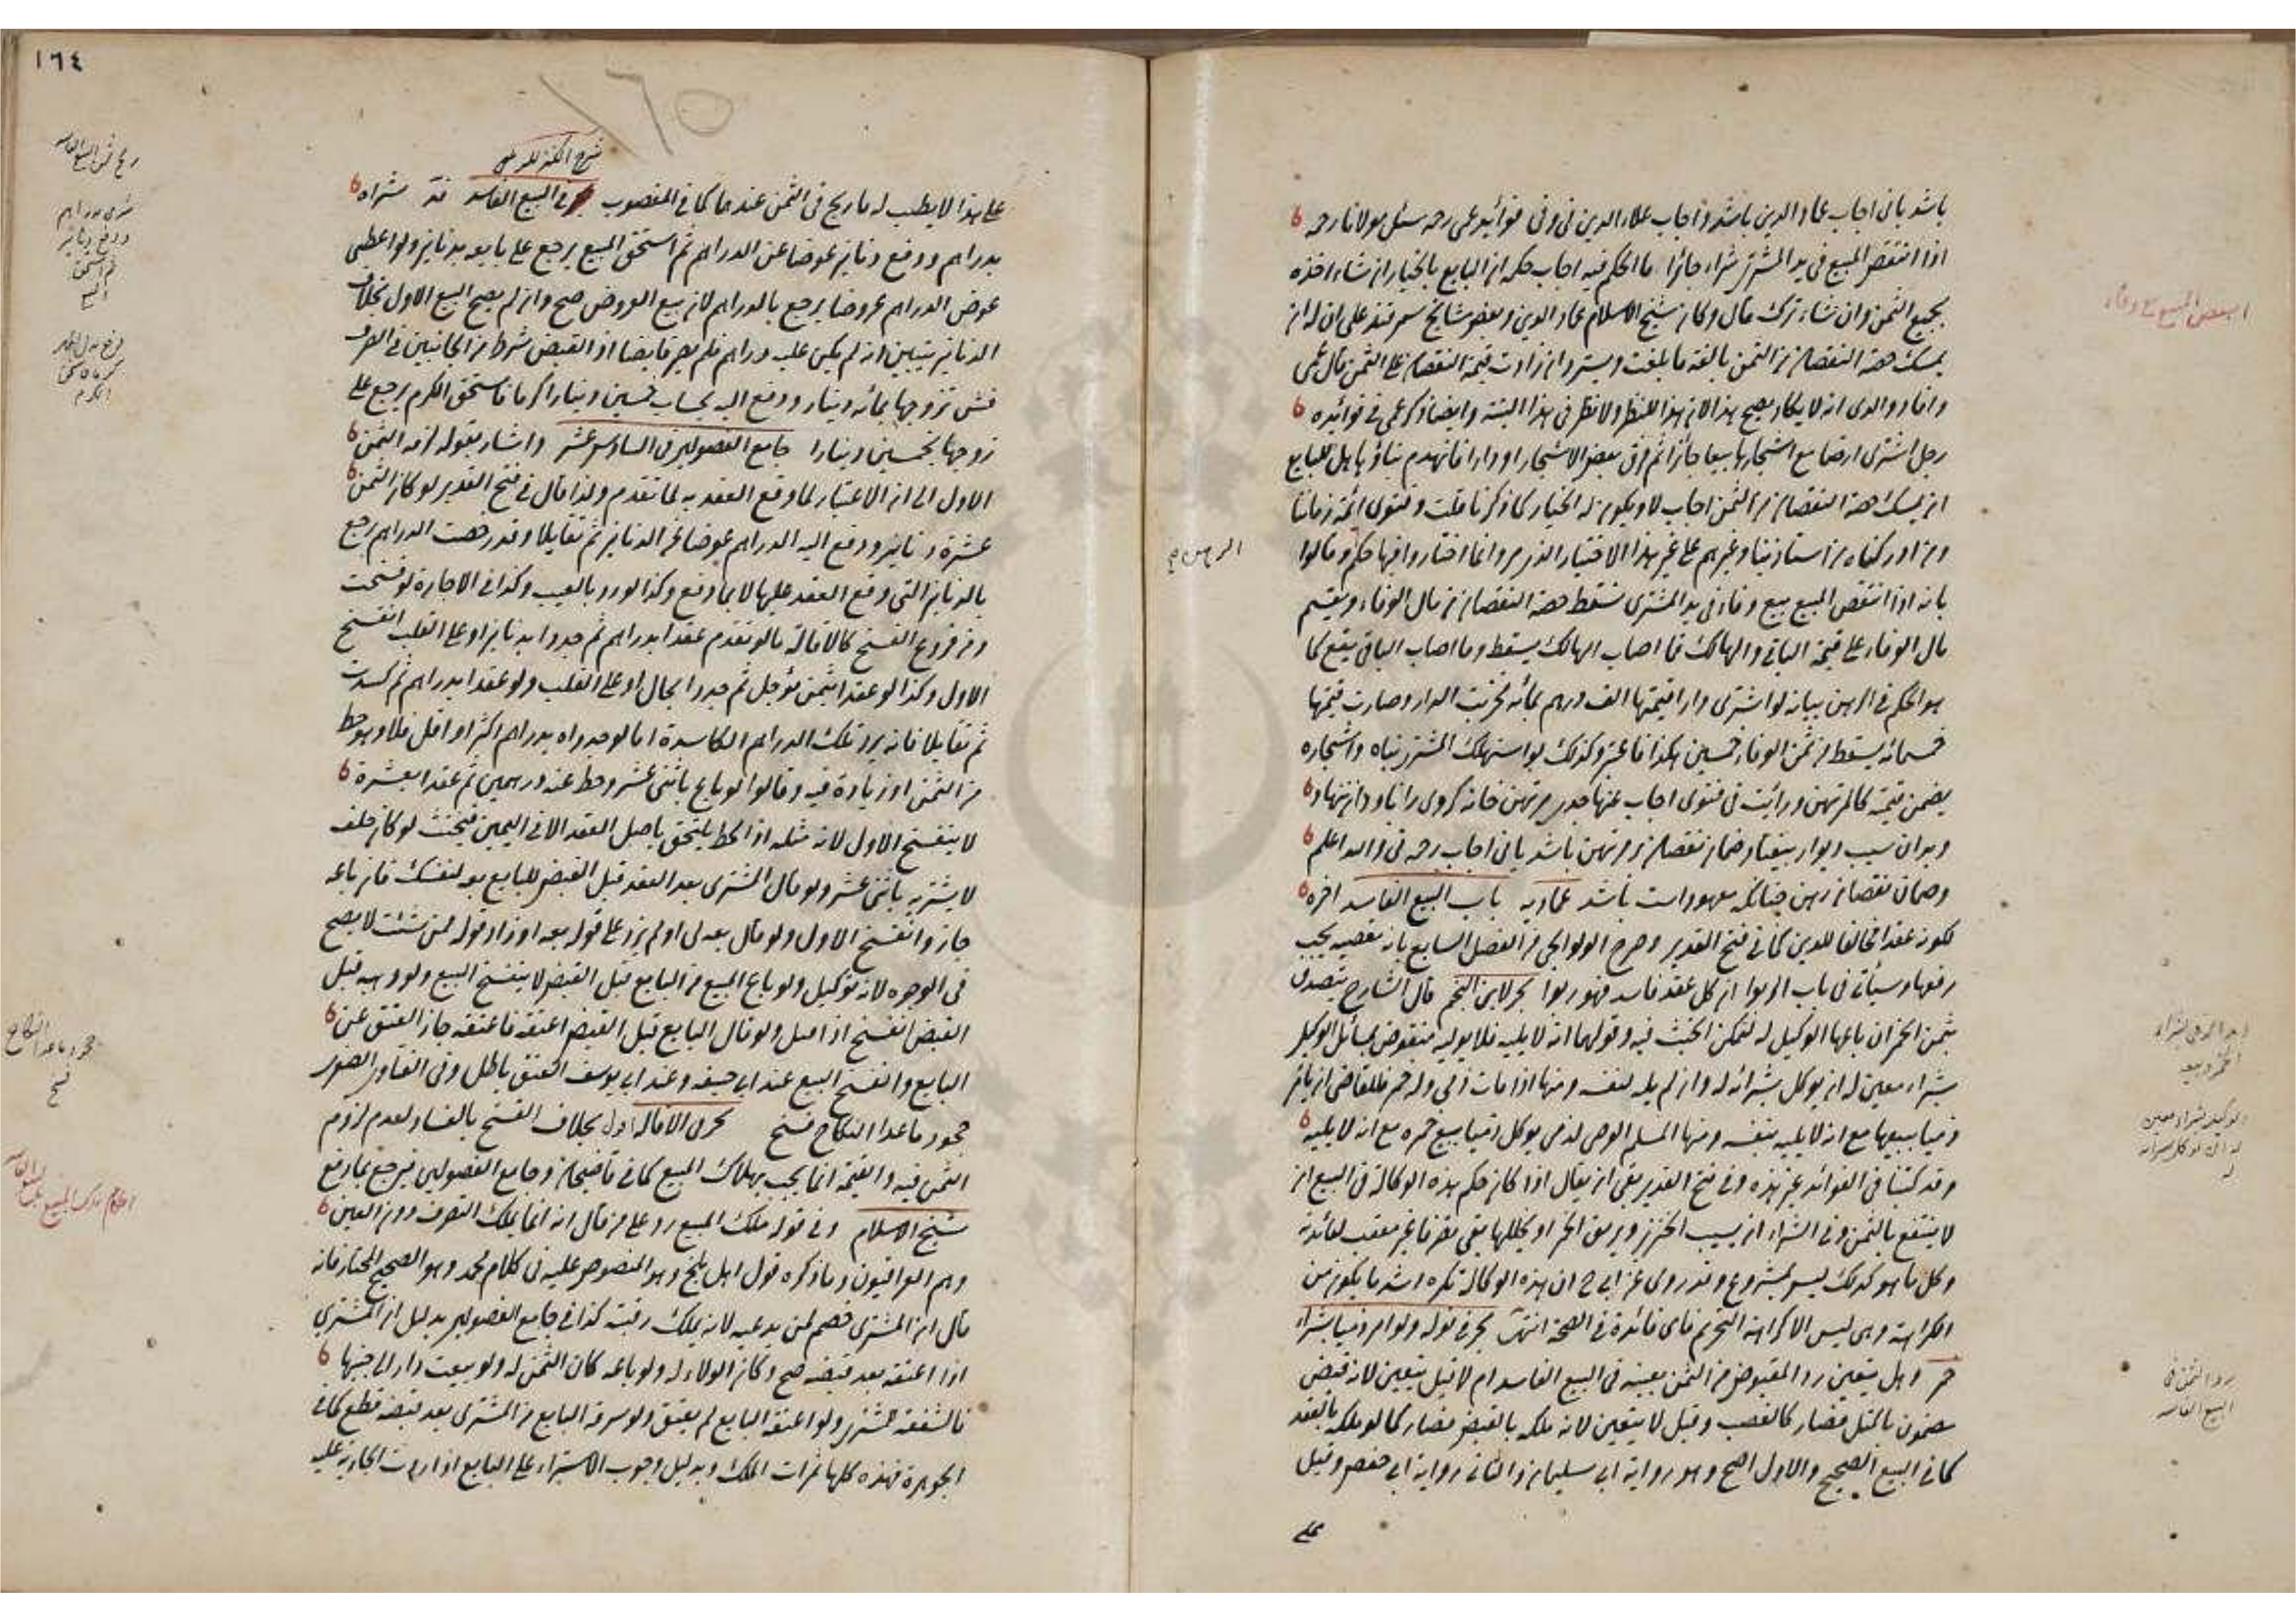 باشد يا نى اجاب عماد الدين باشد واجاب علاء الدين نى وفى فوائد عمى رحمه سئل مولانا رحمه
اذا انتقص المبيع فى يد المشترى شراء جائزا ما الحكم فيه اجاب حكمه ان البايع بالخيار ان شاء اخذه
بجميع الثمن وان شاء ترك قال وكان شيخ الاسلام عماد الدين وبعض مشايخ سمرقند على ان له ان
يمسك حصة النقصان من الثمن بالغة ما بلغت ويسترد ان زادت قيمة النقصان على الثمن قال عمى
وافاد والدى انه لا يكاد يصح هذا لان هذا للنظر ولا نظر فى هذا البتة وايضا ذكر عمى فى فوائده
رجل اشترى ارضا مع اشجارها بيعا جائزا ثم بعض الاشجار او دارا فانهدم بناؤها هل للبايع
ان يمسك حصة النقصان من الثمن اجاب لا ويكون له الخيار كما ذكرنا قلت وفتوى ائمة زماننا
ومن ادركناه من استاذينا وغيرهم على غير هذا الاختيار الذى مر وانما اختاروا فيها حكم وقالوا
بانه اذا انتقص المبيع بيع وفاء فى يد المشترى تسقط حصة النقصان من مال الوفاء ويقسم
مال الوفاء على قيمة الباقى والهالك فما اصاب الهالك يسقط وما اصاب الباقى يبقى كما
هو الحكم فى الرهن بيانه لو اشترى دارا قيمتها الف درهم بمائة فخربت الدار وصارت قيمتها
خمسمائة يسقط من ثمن الوفاء خمسين هكذا وكذلك لو استهلك المشترى بناه واشجاره
يضمن قيمته كالمرتهن ورأيت فى فتوى اجاب عنها جدى مرتهن خانه
وبدان سبب ديوار بيفتاد ضمان نقصان بر مرتهن باشد يا نى اجاب رحمه نى والله اعلم
وضمان نقصان رهن چنانكه معهود است باشد عماديه باب البيع الفاسد اخره
لكونه عقدا مخالفا للدين كما فى فتح القدير وصرح الولوالجى من الفصل السابع بانه معصية يجب
رفعها وسيأتى فى باب الربوا ان كل عقد فاسد فهو ربوا بحر لابن النجم قال الشارح يتصدق
بثمن الخمر ان باعها الوكيل له لتمكن الخبث فيه وقولهما انه لا يليه فلا يوليه منقوض بمسائل الوكيل
بشراء معين له ان يوكل بشرائه له وان لم يله لنفسه ومنها اذا مات ذمى وله خمر فللقاضى ان يأمر
ذميا ببيعها مع انه لا يليه بنفسه ومنها المسلم الوصى لذمى يوكل ذميا ببيع خمره مع انه لا يليه
وقد كتبنا فى الفوائد غير هذه وفى فتح القدير بقى ان يقال اذا كان حكم هذه الوكالة فى البيع ان
لا ينتفع بالثمن وفى الشراء ان يسيب الخنزير ويريق الخمر او يخللها بقى تصرفا غير معقب لفائدته
وكل ما هو كذلك ليس بمشروع وقد روى عن ابى ح ان هذه الوكالة تكره اشد ما يكون من
الكراهة وهى ليس الا كراهة التحريم فاى فائدة فى الصحة انتهى بحر فى قوله ولو امر ذميا بشراء
خمر وهل يتعين رد المقبوض من الثمن بعينه فى البيع الفاسد ام لا قيل يتعين لانه قبض
مضمون بالمثل فصار كالغصب وقيل لا يتعين لانه ملكه بالقبض فصار كما لو ملكه بالعقد
كما فى البيع الصحيح والاول اصح وهو رواية ابى سليمان والثانى رواية ابى حفص وقيل
على
الرهن
رد الثمن فى
البيع الفاسد
١٦٤
١٦٥
شرح الكنز للزيلعى
على هذا لا يطيب له ما ربح فى الثمن عندهما كما فى المغصوب فى البيع الفاسد شراه
بدراهم ودفع دنانير عوضا عن الدراهم ثم استحق المبيع يرجع على بايعه بدنانير ولو اعطى
عوض الدراهم عروضا يرجع بالدراهم لان بيع العروض صح وان لم يصح البيع الاول بخلاف
الدنانير يتبين انه لم يكن عليه دراهم فلم يصر قابضا اذ القبض شرط من الجانبين فى الصرف
فش تزوجها بمائة دينار ودفع اليه بحساب خمسين دينارا كرما فاستحق الكرم يرجع على
زوجها بخمسين دينارا جامع الفصولين فى السادس عشر واشار بقوله لزمه الثمن
الاول الى ان الاعتبار لما وقع العقد به لما تقدم ولذا قال فى فتح القدير لو كان الثمن
عشرة دنانير ودفع اليه الدراهم عوضا عن الدنانير ثم تقايلا وقد رخصت الدراهم رجع
بالدنانير التى وقع العقد عليها لا بما دفع وكذا لو رد بالعيب وكذا فى الاجارة لو فسخت
ومن فروع الفسخ كالاقالة ما لو تقدم عقدا بدراهم ثم جددا بدنانير او على القلب انفسخ
الاول وكذا لو عقدا بثمن مؤجل ثم جددا بحال او على القلب ولو عقدا بدراهم ثم كسدت
ثم تقايلا فانه يرد تلك الدراهم الكاسدة اما لو جدداه بدراهم اكثر او اقل فلا وهو حط
من الثمن او زيادة فيه وقالوا لو باع باثنى عشر وحط عنه درهمين ثم عقدا بعشرة
لا ينفسخ الاول لانه مثله اذ الحط يلتحق باصل العقد الا فى اليمين فيحنث لو كان حلف
لا يشتريه باثنى عشر ولو قال المشترى بعد العقد قبل القبض للبايع بعه لنفسك فان باعه
جاز وانفسخ الاول ولو قال بعه لى او لم يزد على قوله بعه او زاد قوله ممن شئت لا يصح
فى الوجوه لانه توكيل ولو باع المبيع من البايع قبل القبض لا ينفسخ البيع ولو وهبه قبل
القبض انفسخ اذا قبل ولو قال البايع قبل القبض اعتقه فاعتقه جاز العتق عن
البايع وانفسخ البيع عند ابى حنيفه وعند ابى يوسف العتق باطل وفى الفتاوى الصغرى
جحود ما عدا النكاح فسخ بحر فى الاقالة اول بخلاف الفسخ بالفساد لعدم لزوم
الثمن فيه والقيمة انما يجب بهلاك المبيع كما فى قاضيخان وجامع الفصولين فيرجع بما دفع
شيخ الاسلام وفى قوله ملك المبيع رد على من قال انه انما يملك التصرف دون العين
وهم العراقيون وما ذكره قول اهل بلخ وهو المنصوص عليه فى كلام محمد وهو الصحيح المختار فانه
قال ان المشترى خصم لمن يدعيه لانه يملك رقبته كذا فى جامع الفصولين بدليل ان المشترى
اذا اعتقه بعد قبضه صح وكان الولاء له ولو باعه كان الثمن له ولو بيعت دار الى جنبها
فالشفعة للمشترى ولو اعتقه البايع لم يعتق ولو سرقه البايع من المشترى بعد قبضه قطع كما فى
الجوهرة فهذه كلها ثمرات الملك وبدليل وجوب الاستبراء على البايع اذا ردت الجارية عليه